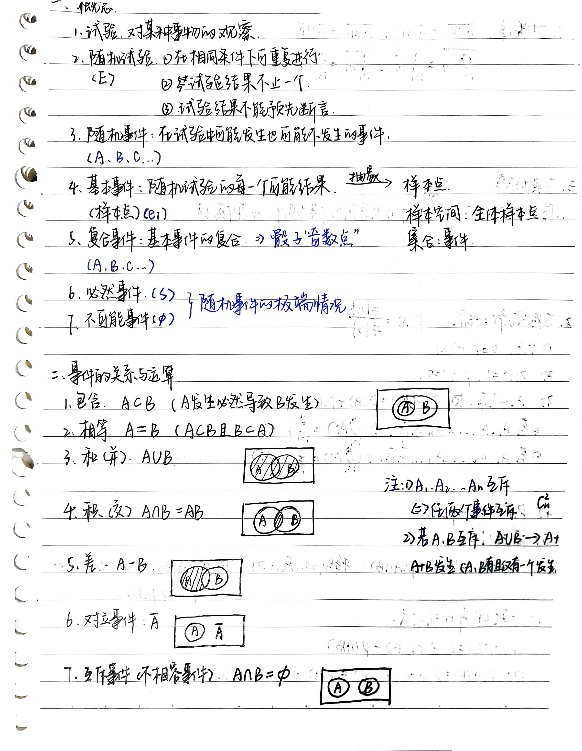 一、概念
1.试验:对某种事物的观察.
2.随机试验 ①在相同条件下可重复进行
(E) ②试验结果不止一个
③试验结果不能预先断言.
3.随机事件:在试验中可能发生也可能不发生的事件.
(A.B.C...)
4.基本事件:随机试验的每一个可能结果 抽象→ 样本点
(样本点)(ei) 样本空间:全体样本点
5.复合事件:基本事件的复合 => 骰子"奇数点" 集合:事件
(A.B.C...)
6.必然事件(S) } 随机事件的极端情况
7.不可能事件(φ)
二、事件的关系与运算
1.包含 A⊂B (A发生必然导致B发生) A B
2.相等 A=B (A⊂B且B⊂A)
3.和(并) A∪B A B
注:1) A1.A2...An互斥
4.积(交) A∩B=AB A B
<=>任两个事件互斥
2)若A.B互斥, A∪B→A+
5.差 A-B A B
A+B发生(A.B有且仅有一个发生
6.对立事件 Ā A Ā
7.互斥事件(不相容事件) A∩B=φ A B